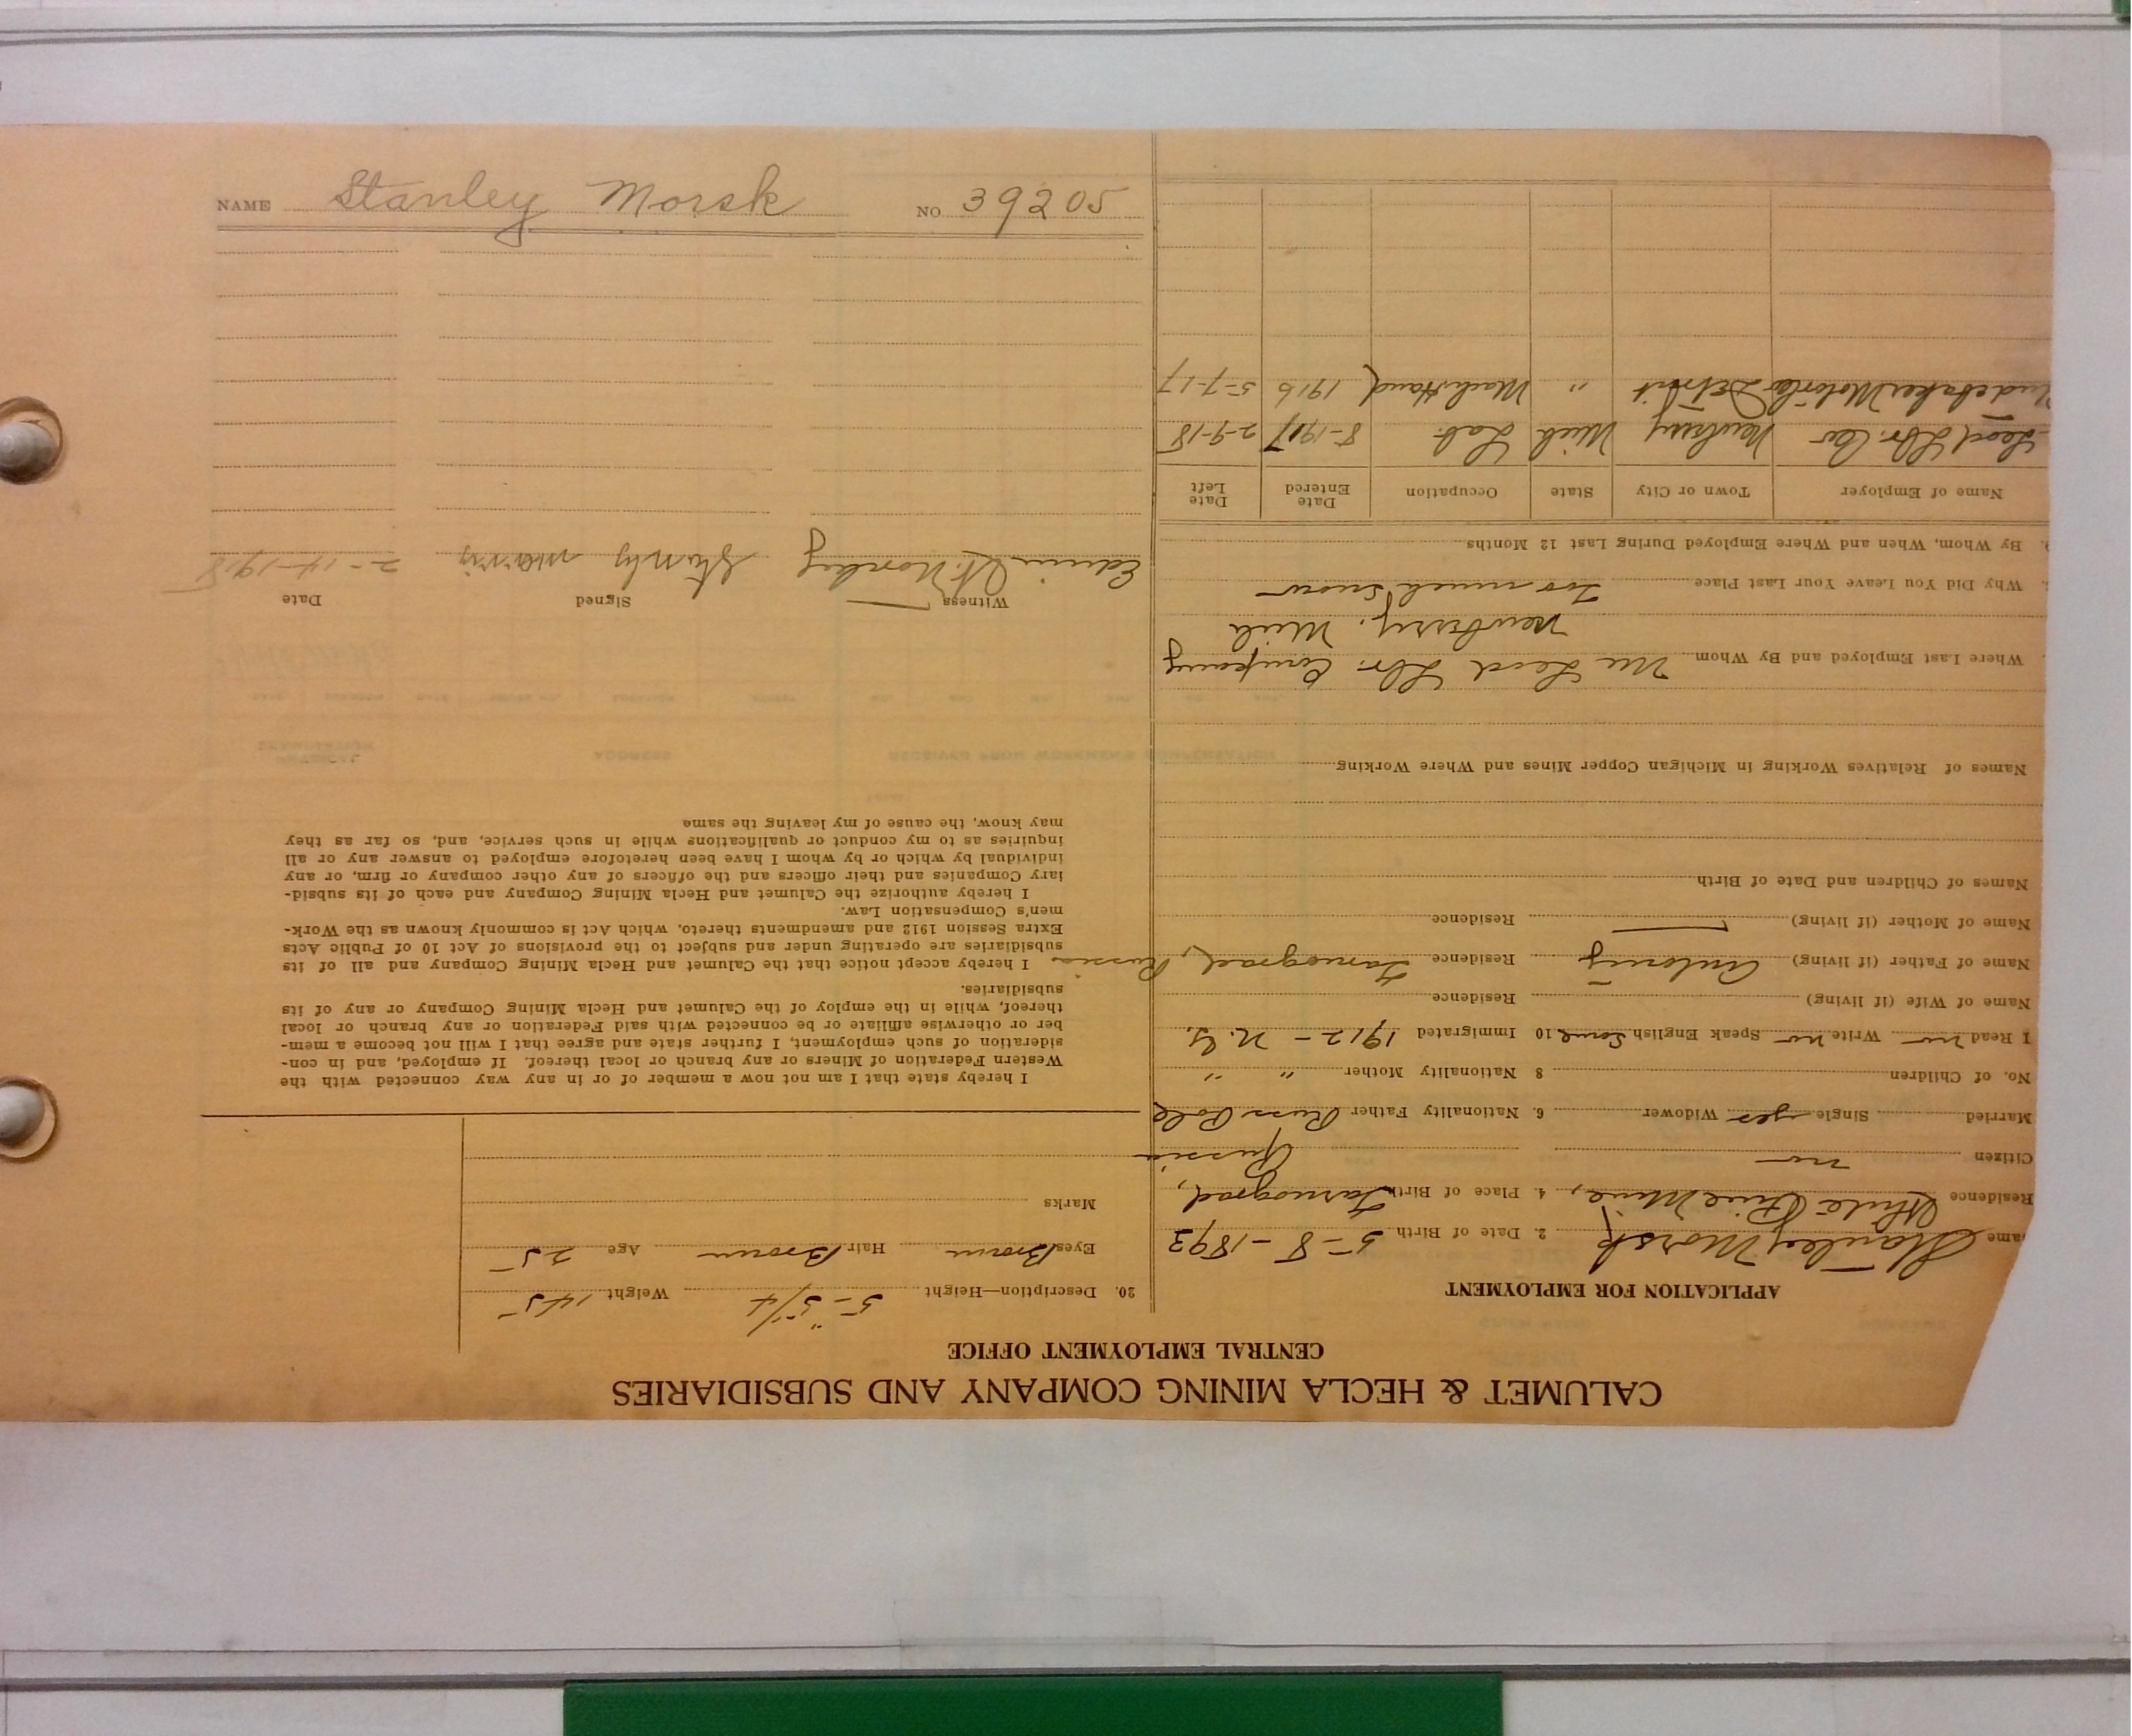 CALUMET & HECLA MINING COMPANY AND SUBSIDIARIES
CENTRAL EMPLOYMENT OFFICE
APPLICATION FOR EMPLOYMENT
ame Stanley Morsk 2. Date of Birth 5-8-1893
Residence Mine, 4. Place of Birth Tarnograd,
Citizen no Russia
Married Single yes Widower 6. Nationality Father Russ Pole
No. of Children 8 Nationality Mother " "
I Read no Write no Speak English Some 10 Immigrated 1912 - N.Y.
Name of Wife (if living) Residence
Name of Father (if living) Antony Residence Tarnograd, Russia
Name of Mother (if living) Residence
Names of Children and Date of Birth
Names of Relatives Working in Michigan Copper Mines and Where Working
Where Last Employed and By Whom Mc Leod Lbr. Company
Newberry, Mich
Why Did You Leave Your Last Place Too much snow
9. By Whom, When and Where Employed During Last 12 Months
Name of Employer Town or City State Occupation Date Entered Date Left
Leod Lbr. Co Newberry Mich Lab. 8-1917 2-9-18
udebaker Motor Co Detroit " Mach. Hand 1916 5-7-17
20. Description—Height 5-5 3/4" Weight 145
Eyes Brown Hair Brown Age 25
Marks
I hereby state that I am not now a member of or in any way connected with the
Western Federation of Miners or any branch or local thereof. If employed, and in con-
sideration of such employment, I further state and agree that I will not become a mem-
ber or otherwise affiliate or be connected with said Federation or any branch or local
thereof, while in the employ of the Calumet and Hecla Mining Company or any of its
subsidiaries.
I hereby accept notice that the Calumet and Hecla Mining Company and all of its
subsidiaries are operating under and subject to the provisions of Act 10 of Public Acts
Extra Session 1912 and amendments thereto, which Act is commonly known as the Work-
men's Compensation Law.
I hereby authorize the Calumet and Hecla Mining Company and each of its subsid-
iary Companies and their officers and the officers of any other company or firm, or any
individual by which or by whom I have been heretofore employed to answer any or all
inquiries as to my conduct or qualifications while in such service, and, so far as they
may know, the cause of my leaving the same
Witness Signed Date
Edwin 2-14-1918
NAME Stanley Morsk NO 39205